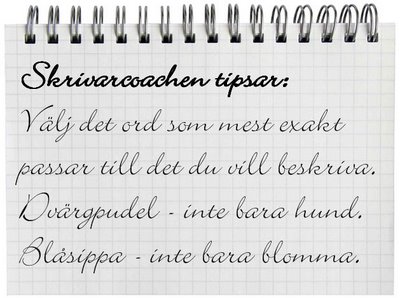 Skrivarcoachen tipsar:
Välj det ord som mest exakt
passar till det du vill beskriva.
Dvärgpudel - inte bara hund.
Blåsippa - inte bara blomma.